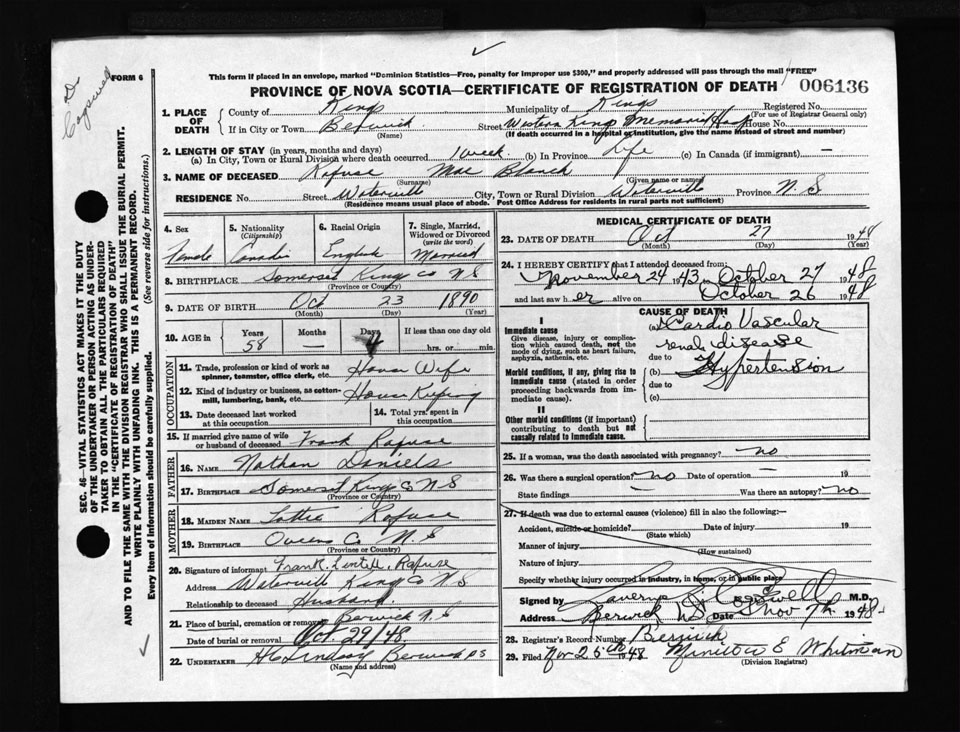 FORM 6
This form if placed in an envelope, marked "Dominion Statistics—Free, penalty for improper use $300," and properly addressed will pass through the mail "FREE"
PROVINCE OF NOVA SCOTIA—CERTIFICATE OF REGISTRATION OF DEATH 006136
1. PLACE OF DEATH County of Kings Municipality of Kings Registered No. (For use of Registrar General only)
If in City or Town Berwick (Name) Street Western Kings Memorial Hosp House No.
(If death occurred in a hospital or institution, give the name instead of street and number)
2. LENGTH OF STAY (in years, months and days)
(a) In City, Town or Rural Division where death occurred 1 week (b) In Province Life (c) In Canada (if immigrant) —
3. NAME OF DECEASED Rafuse Mae Blanch
(Surname) (Given name or names)
RESIDENCE No. Street Waterville City, Town or Rural Division Waterville Province N S
(Residence means usual place of abode. Post Office Address for residents in rural parts not sufficient)
4. Sex Female
5. Nationality (Citizenship)
6. Racial Origin English
7. Single, Married, Widowed or Divorced (write the word) Married
8. BIRTHPLACE Somerset Kings Co N S
(Province or Country)
9. DATE OF BIRTH Oct 23 1890
(Month) (Day) (Year)
10. AGE in Years 58 Months — Days 4 If less than one day old hrs. or min.
OCCUPATION
11. Trade, profession or kind of work as spinner, teamster, office clerk, etc. House Wife
12. Kind of industry or business, as cotton-mill, lumbering, bank, etc. House Keeping
13. Date deceased last worked at this occupation
14. Total yrs. spent in this occupation
15. If married give name of wife or husband of deceased Frank Rafuse
FATHER
16. NAME Nathan Daniels
17. BIRTHPLACE Somerset Kings Co N S
(Province or Country)
MOTHER
18. MAIDEN NAME Lottie Rafuse
19. BIRTHPLACE Queens Co N. S
(Province or Country)
20. Signature of informant Frank Rafuse
Address Waterville Kings Co N S
Relationship to deceased Husband
21. Place of burial, cremation or removal Berwick N. S
Date of burial or removal Oct. 29/48
22. UNDERTAKER Lindsay Berwick
(Name and address)
MEDICAL CERTIFICATE OF DEATH
23. DATE OF DEATH Oct 27 1948
(Month) (Day) (Year)
24. I HEREBY CERTIFY that I attended deceased from:
November 24 1943 to October 27 1948
and last saw her alive on October 26 1948
CAUSE OF DEATH
I
Immediate cause
Give disease, injury or complication which caused death, not the mode of dying, such as heart failure, asphyxia, asthenia, etc.
(a) Cardio Vascular
renal disease
due to
Morbid conditions, if any, giving rise to immediate cause (stated in order proceeding backwards from immediate cause).
(b) Hypertension
due to
(c)
II
Other morbid conditions (if important) contributing to death but not causally related to immediate cause.
25. If a woman, was the death associated with pregnancy? no
26. Was there a surgical operation? no Date of operation — 19
State findings — Was there an autopsy? no
27. If death was due to external causes (violence) fill in also the following:—
Accident, suicide or homicide? Date of injury 19
(State which)
Manner of injury
(How sustained)
Nature of injury
Specify whether injury occurred in industry, in home, or in public place
Signed by M.D.
Address Berwick NS Date Nov 7th 1948
28. Registrar's Record Number Berwick
29. Filed Nov 25th 1948 E Whitman
(Division Registrar)
SEC. 46—VITAL STATISTICS ACT MAKES IT THE DUTY
OF THE UNDERTAKER OR PERSON ACTING AS UNDER-
TAKER TO OBTAIN ALL THE PARTICULARS REQUIRED
IN THE "CERTIFICATE OF REGISTRATION OF DEATH"
AND TO FILE THE SAME WITH THE DIVISION REGISTRAR WHO SHALL ISSUE THE BURIAL PERMIT.
WRITE PLAINLY WITH UNFADING INK. THIS IS A PERMANENT RECORD.
Every item of information should be carefully supplied. (See reverse side for instructions.)